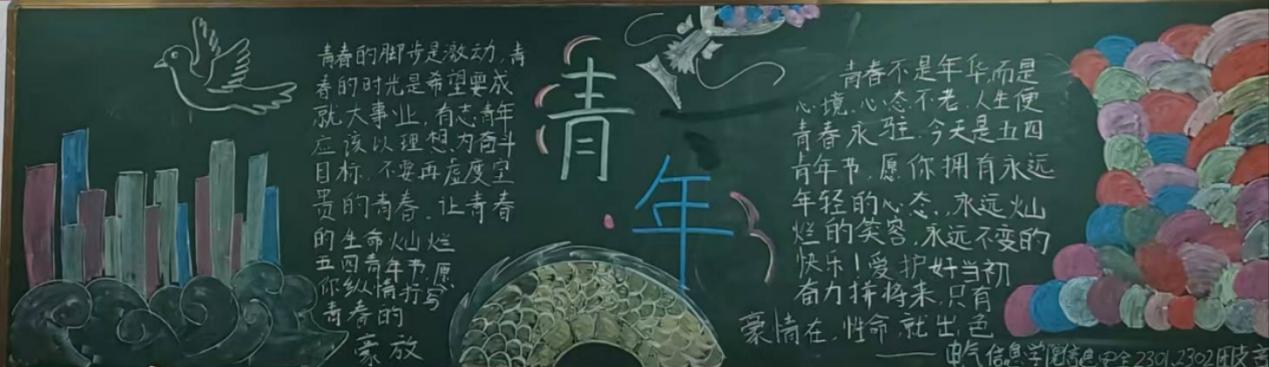 青春的脚步是激动,青
春的时光是希望要成
就大事业,有志青年
应该以理想,为奋斗
目标,不要再虚度宝
贵的青春,让青春
的生命灿烂
五四青年节,愿
你纵情抒写
青春的
豪放
青
年
青春不是年华,而是
心境,心态不老,人生便
青春永驻,今天是五四
青年节,愿你拥有永远
年轻的心态,永远灿
烂的笑容,永远不变的
快乐!爱护好当初
奋力拼将来,只有
豪情在,性命就出色
——电气信息学院信息安全2301,2302团支